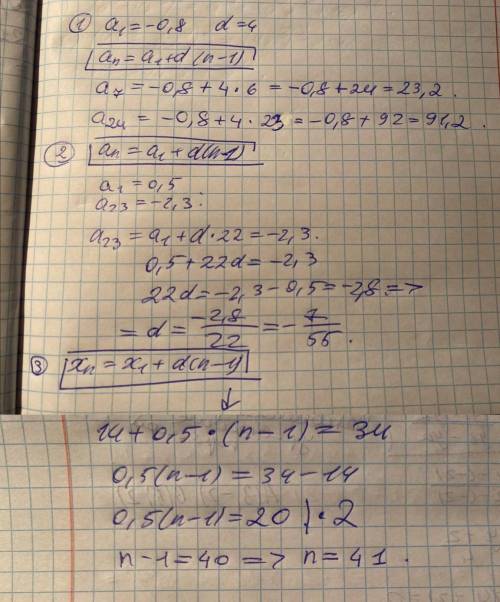 ① a₁ = -0,8 d = 4
aₙ = a₁ + d(n-1)
a₇ = -0,8 + 4 · 6 = -0,8 + 24 = 23,2.
a₂₄ = -0,8 + 4 · 23 = -0,8 + 92 = 91,2.
② aₙ = a₁ + d(n-1)
a₁ = 0,5
a₂₃ = -2,3.
a₂₃ = a₁ + d · 22 = -2,3.
0,5 + 22d = -2,3
22d = -2,3 - 0,5 = -2,8 =>
= d = -2,8/22 = -7/55.
③ xₙ = x₁ + d(n-1)
↓
14 + 0,5 · (n-1) = 34
0,5(n-1) = 34 - 14
0,5(n-1) = 20 | · 2
n - 1 = 40 => n = 41.